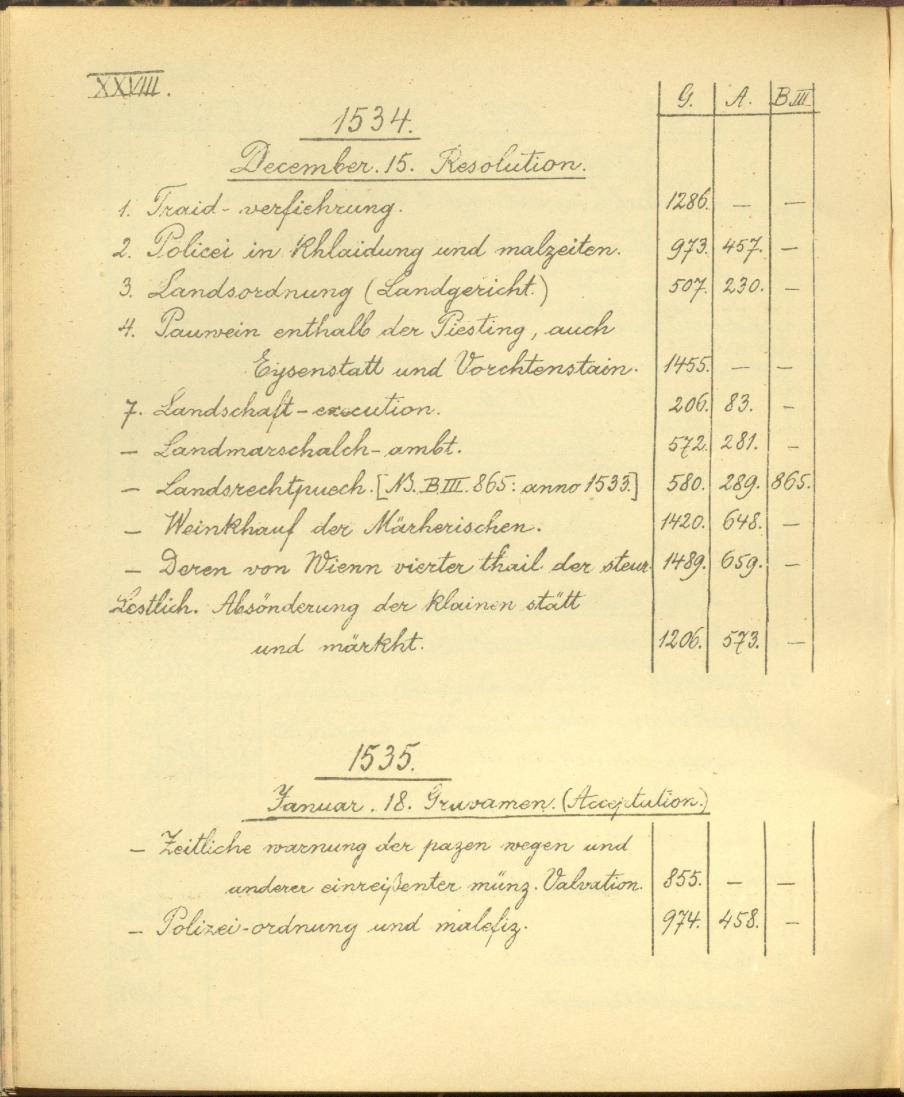 XXVIII.
G. A. B III
1534.
December. 15. Resolution.
1. Traid-verfiehrung. 1286. — —
2. Policei in Khlaidung und malzeiten. 973. 457. —
3. Landsordnung (Landgericht.) 507. 230. —
4. Pauwein enthalb der Piesting, auch
Eysenstatt und Vorchtenstain. 1455. — —
7. Landschaft-execution. 206. 83. —
— Landmarschalch-ambt. 572. 281. —
— Landsrechtpuech. [NB. B III. 865: anno 1533.] 580. 289. 865.
— Weinkhauf der Märherischen. 1420. 648. —
— Deren von Wienn vierter thail der steur 1489. 659. —
Lestlich. Absönderung der klainen stätt
und märkht. 1206. 573. —
1535.
Januar. 18. Gravamen. (Acceptation.)
— Zeitliche warnung der pazen wegen und
anderer einreißenter münz. Valvation. 855. — —
— Polizei-ordnung und malefiz. 974. 458. —